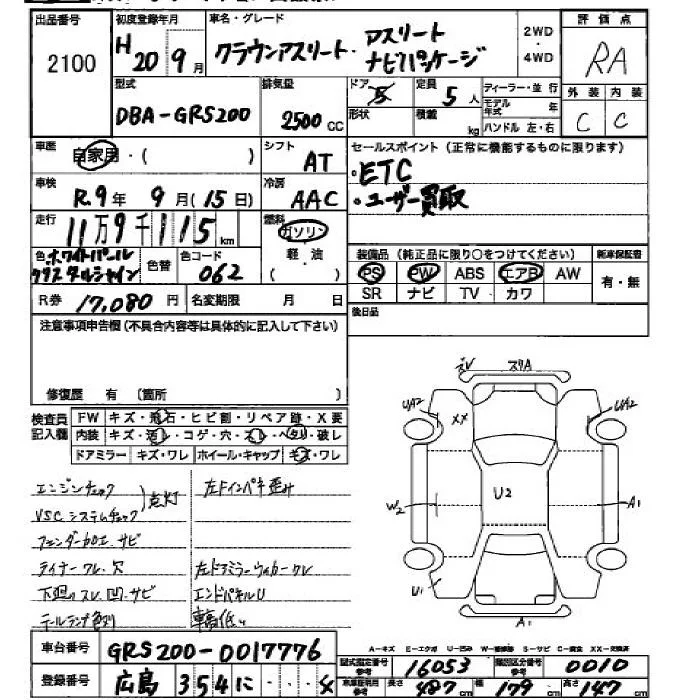 出品番号
2100
初度登録年月
H20年9月
車名・グレード
クラウンアスリート・アスリート
ナビパッケージ
2WD
・
4WD
評価点
RA
外装 内装
C C
型式
DBA-GRS200
排気量
2500 CC
ドア 5
形状
定員
5人
積載
kg
ディーラー・並行
モデル年式 年
ハンドル 左・右
車歴 自家用・( )
シフト AT
車検 R.9年 9月(15日)
冷房 AAC
走行 11万9千115km
燃料 ガソリン
軽・油
( )
色 ホワイトパールクリスタルシャイン
色替
色コード 062
R券 17,080円
名変期限 月 日
セールスポイント(正常に機能するものに限ります)
・ETC
・ユーザー買取
装備品(純正品に限り○をつけてください)
新車保証書
PS PW ABS エアB AW
SR ナビ TV カワ
有・無
後日品
注意事項申告欄(不具合内容等は具体的に記入して下さい)
修復歴 有 〔箇所 〕
検査員記入欄
FW キズ・飛石・ヒビ割・リペア跡・X要
内装 キズ・汚レ・コゲ・穴・スレ・ヘタリ・破レ
ドアミラー キズ・ワレ ホイール・キャップ キズ・ワレ
エンジンチェック
VSCシステムチェック
点灯
フェンダー加工.サビ
ライナーワレ.穴
下廻りスレ.凹.サビ
テールランプ色別
左Fインパネ歪み
左ドアミラーウィンカーワレ
エンドパネルU
車高低い
スリA
UA2
XX
UA2
W2
U2
A1
U1
A1
A-キズ E-エクボ U-凹み W-補修跡 S-サビ C-腐食 XX-交換済
車台番号 GRS200-0017776
登録番号 広島 354 に ・・・4
型式指定番号 参考 16053
類別区分番号 参考 0010
車庫証明用 参考 長さ 487cm 幅 179cm 高さ 147cm